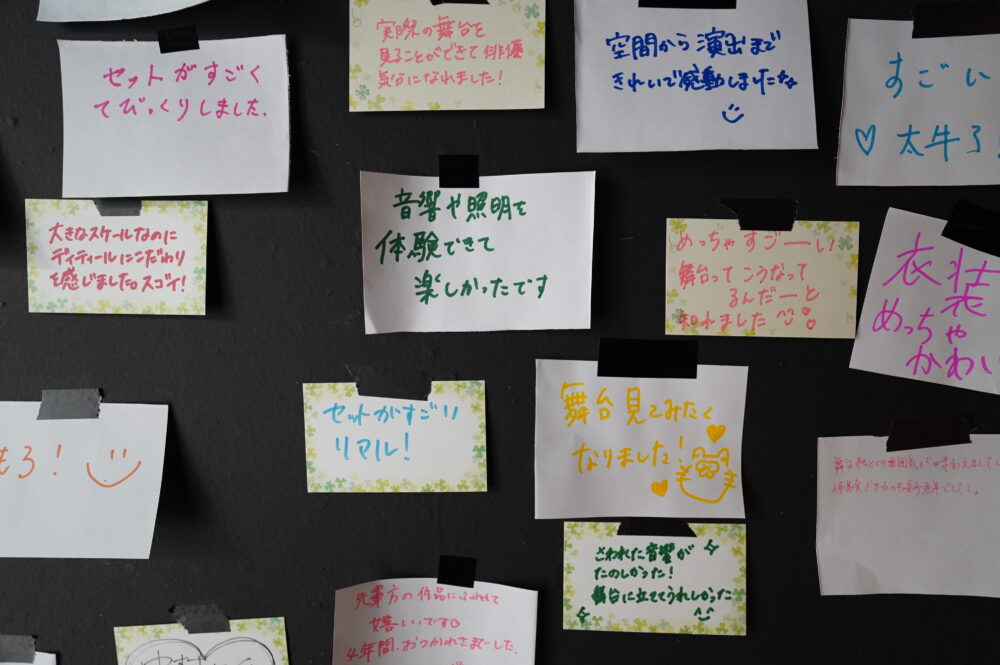 セットがすごく
てびっくりしました.
実際の舞台を
見ることができて俳優
気分になれました!
空間から演出まで
きれいで感動しましたな
すごい
♡太牛了
大きなスケールなのに
ディティールにこだわり
を感じました。スゴイ!
音響や照明を
体験できて
楽しかったです
めっちゃすごーい
舞台ってこうなって
るんだーと
知れました
衣装
めっちゃ
かわい
もろ!
セットがすごい
リマル!
舞台見てみたく
なりました!
さわれた音響が
たのしかった!
舞台に立ててうれしかった
先輩方の作品にふれて
嬉しいです
4年間、おつかれさまでした.